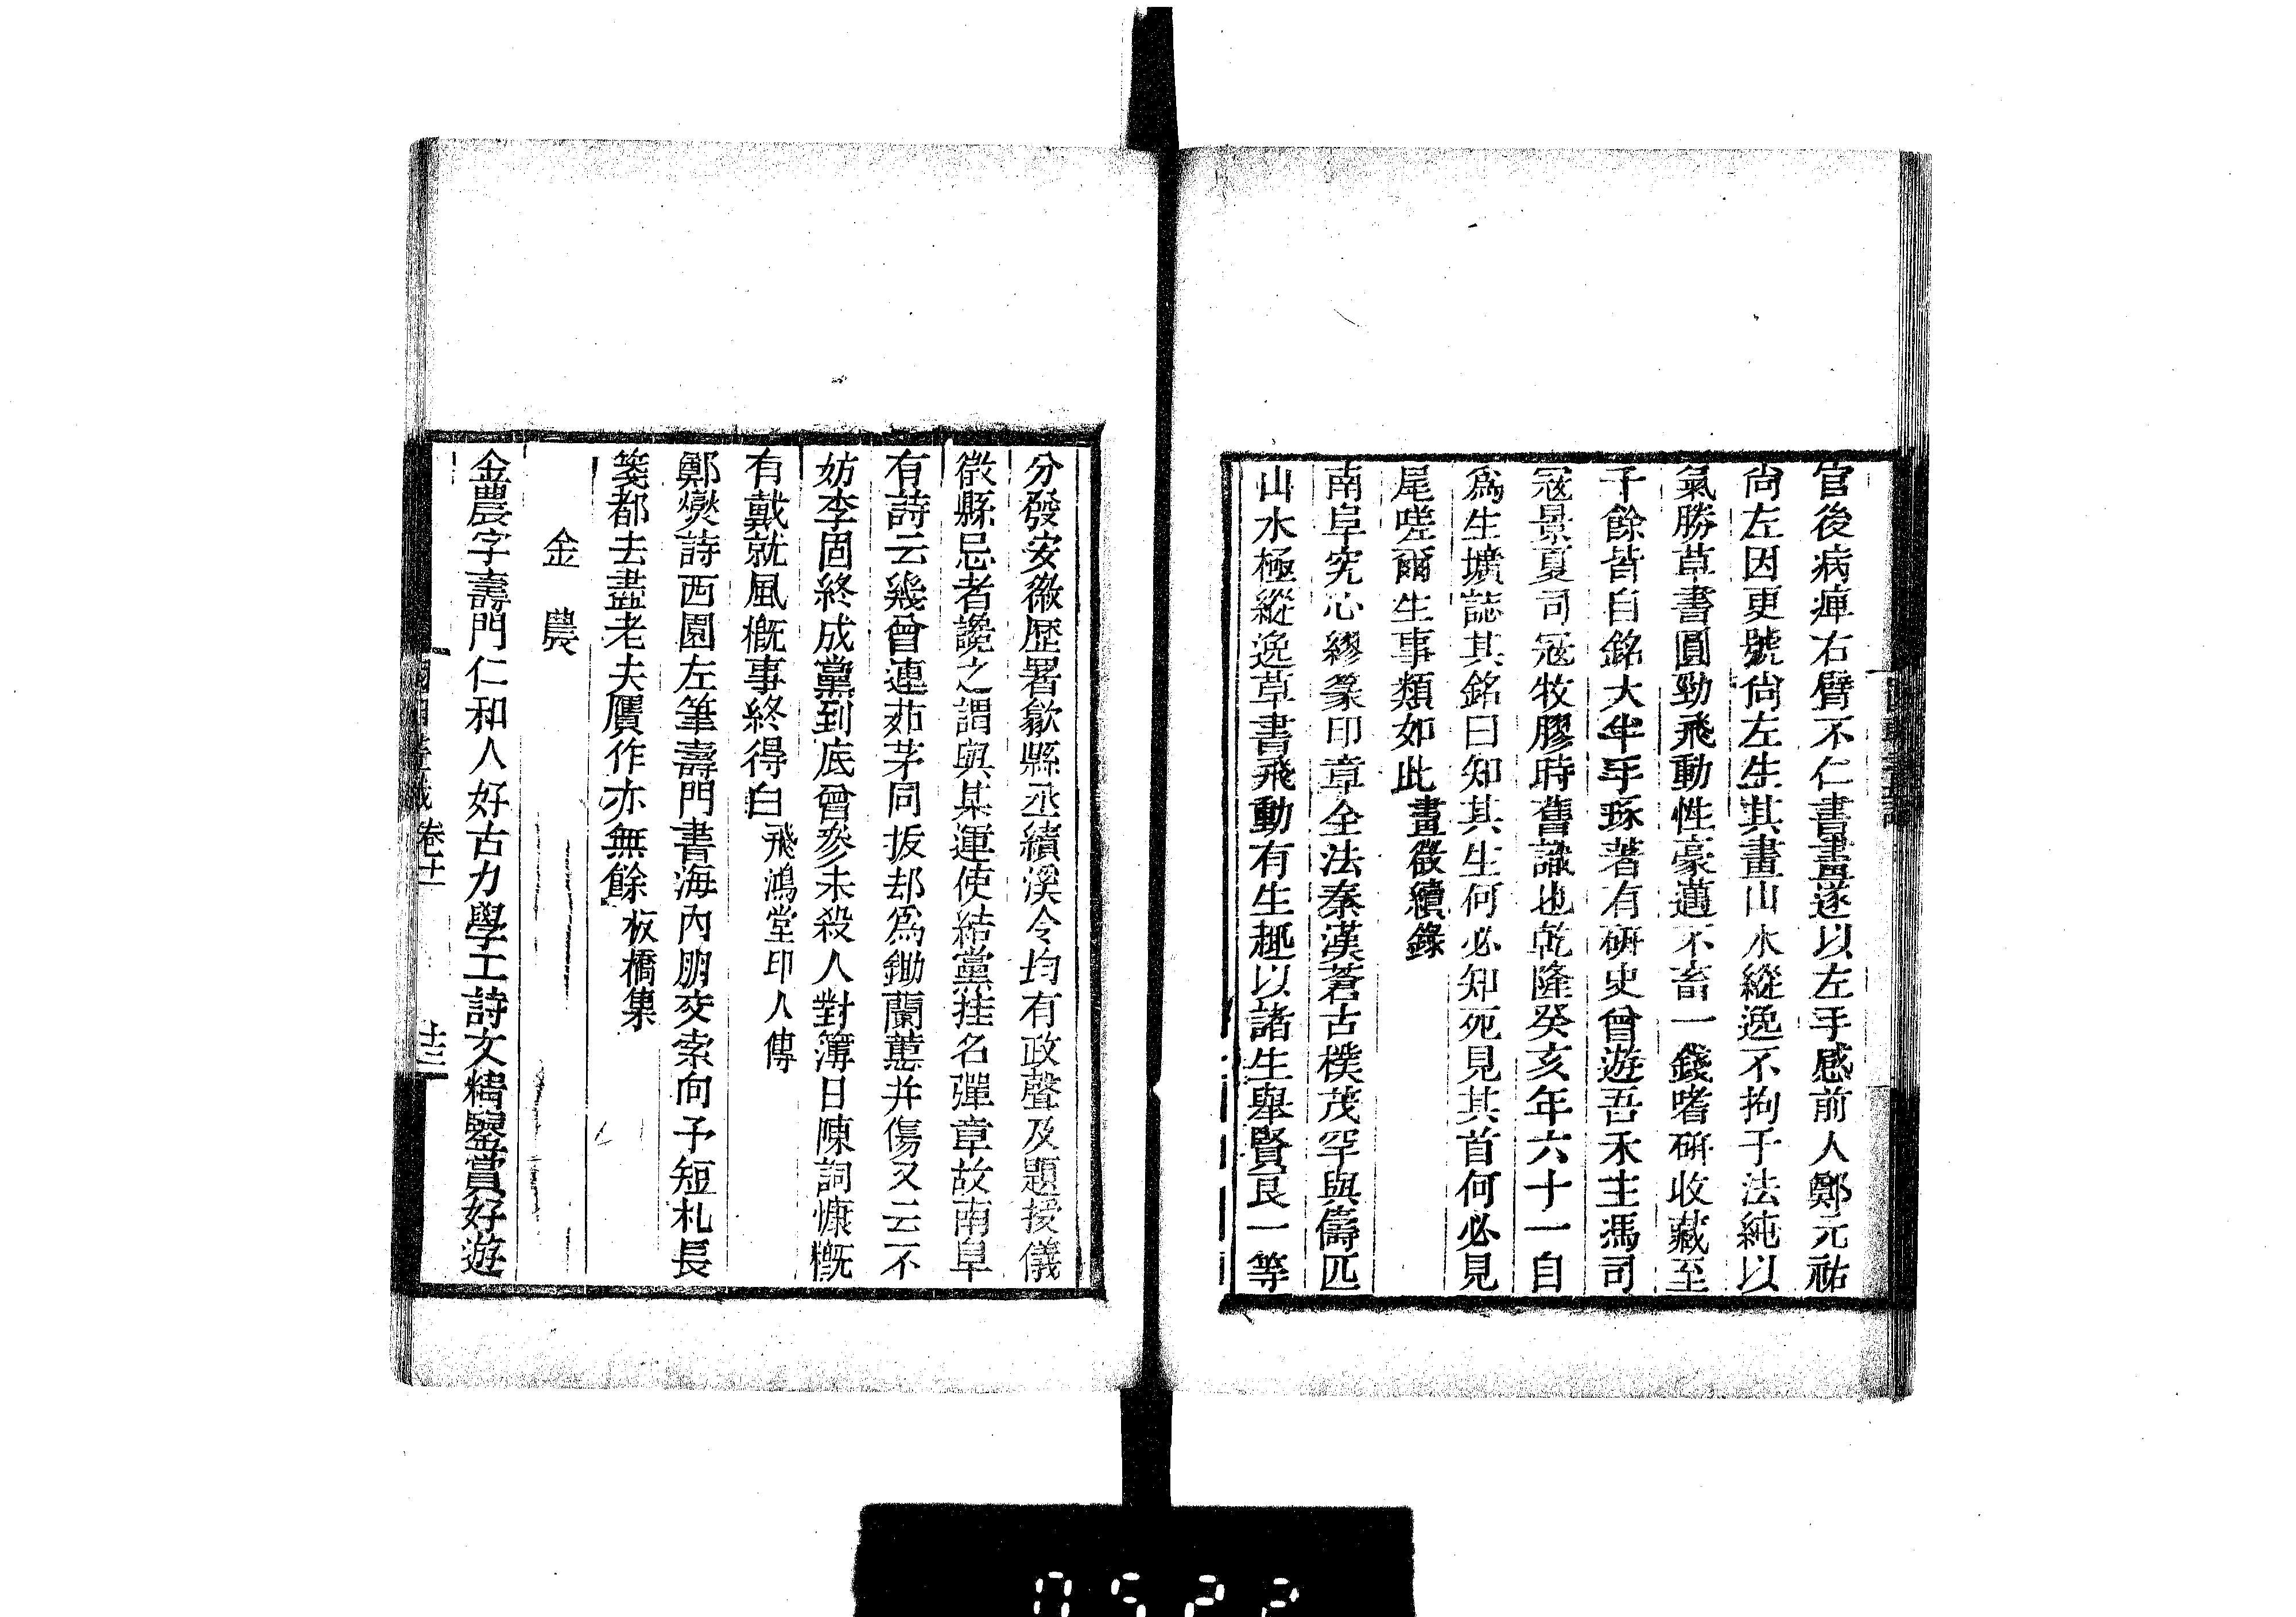 官後病痺右臂不仁書畫遂以左手感前人鄭元祐
尙左因更號尙左生其畫山水縱逸不拘于法純以
氣勝草書圓勁飛動性豪邁不畜一錢嗜硏收藏至
千餘皆自銘大半手琢著有硏史曾遊吾禾主馮司
寇景夏司寇牧膠時舊識也乾隆癸亥年六十一自
爲生壙誌其銘曰知其生何必知死見其首何必見
尾嗟爾生事類如此畫徵續錄
南阜究心繆篆印章全法秦漢蒼古樸茂罕與儔匹
山水極縱逸草書飛動有生趣以諸生舉賢良一等
分發安徽歷署歙縣丞績溪令均有政聲及題授儀
徵縣忌者讒之謂與某運使結黨挂名彈章故南阜
有詩云幾曾連茹茅同拔却爲鋤蘭蕙并傷又云不
妨李固終成黨到底曾參未殺人對簿日陳詞慷慨
有戴就風槪事終得白飛鴻堂印人傳
鄭燮詩西園左筆壽門書海內朋交索向予短札長
箋都去盡老夫贋作亦無餘板橋集
金農
金農字壽門仁和人好古力學工詩文精鑒賞好遊
卷十一
十三